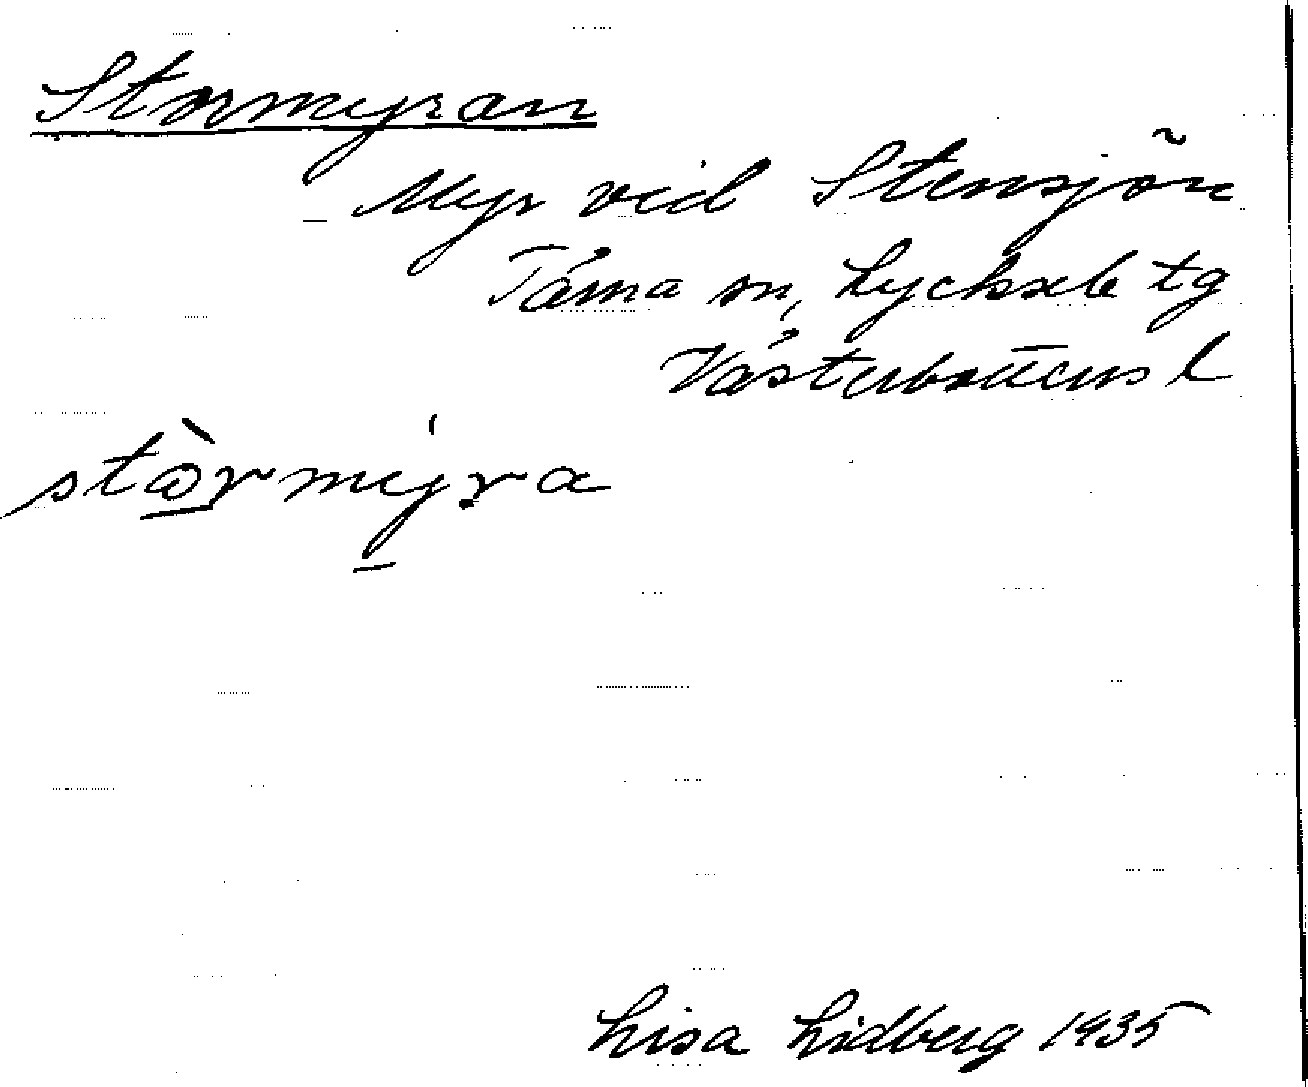 Stormyran
Myr vid Stensjön
Tärna sn, Lycksele tg
Västerbottens l
stòrmýra
Lisa Lidberg 1935